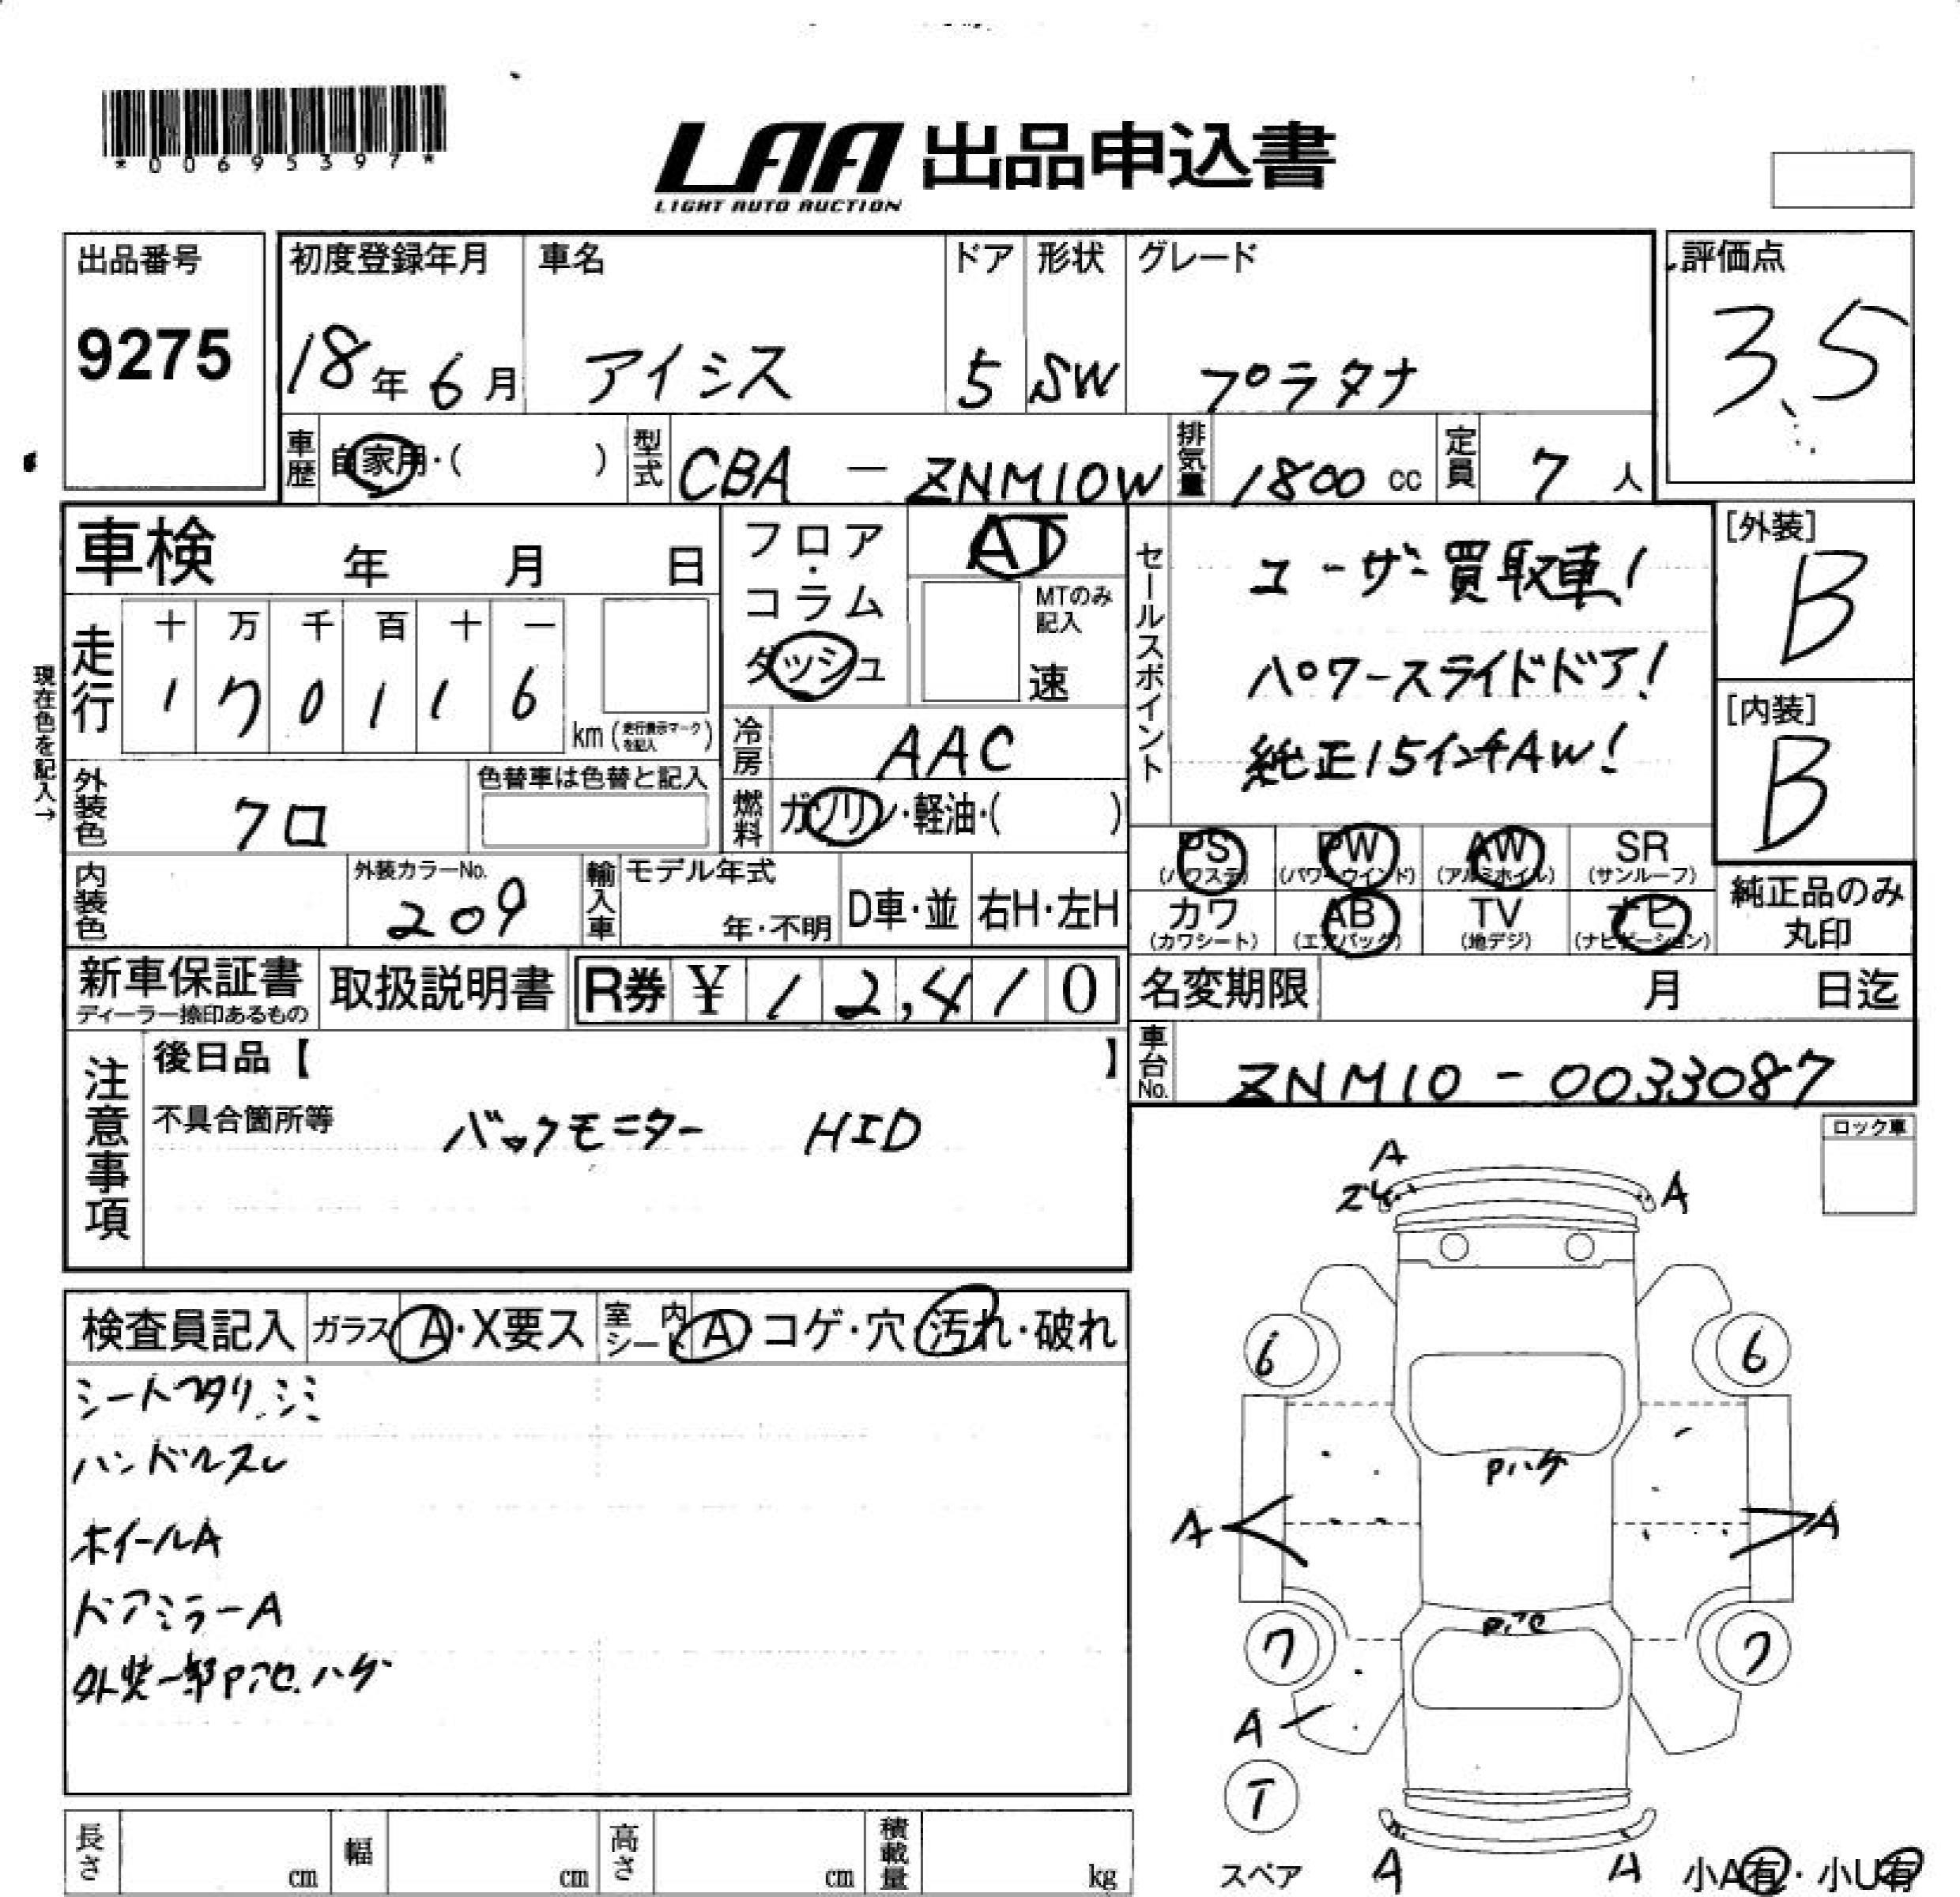 *00695397*
LAA 出品申込書
LIGHT AUTO AUCTION
出品番号
9275
初度登録年月
18年6月
車名
アイシス
ドア
5
形状
SW
グレード
プラタナ
評価点
3.5
車歴 自家用・( )
型式 CBA - ZNM10W
排気量 1800 cc
定員 7 人
車検 年 月 日
フロア・コラム
ダッシュ
AT
MTのみ記入
速
セールスポイント
ユーザー買取車!
パワースライドドア!
純正15インチAW!
[外装]
B
[内装]
B
現在色を記入→
走行
十 万 千 百 十 一
1 7 0 1 1 6
km (走行表示マークを記入)
冷房 AAC
燃料 ガソリン・軽油・( )
外装色 クロ
色替車は色替と記入
内装色
外装カラーNo.
209
輸入車
モデル年式
年・不明
D車・並
右H・左H
PS
(パワステ)
PW
(パワーウインド)
AW
(アルミホイル)
SR
(サンルーフ)
カワ
(カワシート)
AB
(エアバッグ)
TV
(地デジ)
ナビ
(ナビゲーション)
純正品のみ
丸印
新車保証書
ディーラー捺印あるもの
取扱説明書
R券 ¥ 12,410
名変期限 月 日迄
車台No. ZNM10 - 0033087
注意事項
後日品【 】
不具合箇所等
バックモニター HID
ロック車
検査員記入
ガラス A・X要ス
室内シート A コゲ・穴・汚れ・破れ
シートヘタリ、シミ
ハンドルスレ
ホイールA
ドアミラーA
外装一部Pアセ、ハゲ
A
A
6
6
Pハゲ
A
A
Pアセ
7
7
A
T
スペア
A
A
小A有・小U有
長さ cm
幅 cm
高さ cm
積載量 kg